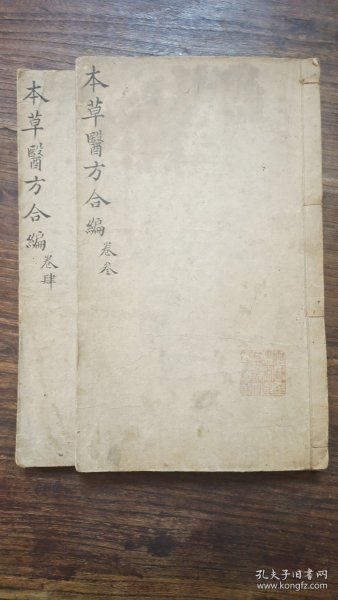 本草醫方合編 卷肆
本草醫方合編 卷叁
孔夫子旧书网
www.kongfz.com